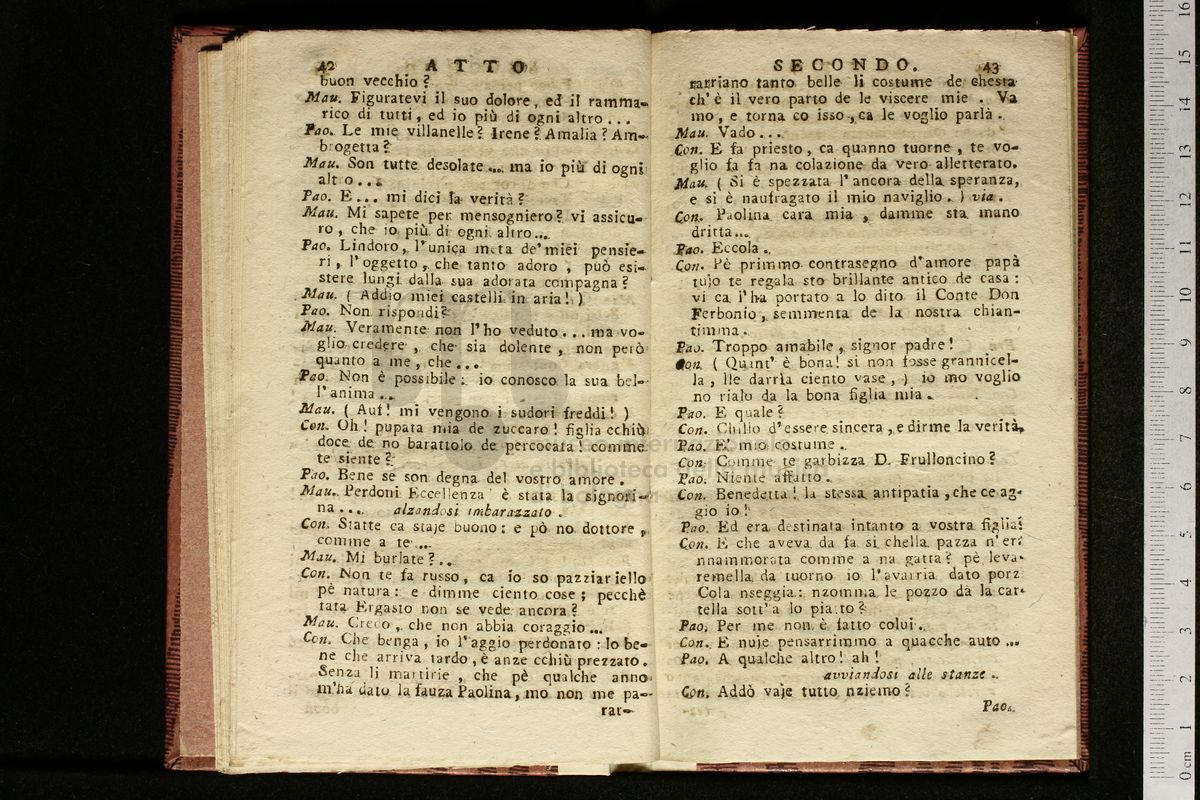 42 ATTO
buon vecchio?
Mau. Figuratevi il suo dolore, ed il ramma-
rico di tutti, ed io più di ogni altro...
Pao. Le mie villanelle? Irene? Amalia? Am-
brogetta?
Mau. Son tutte desolate... ma io più di ogni
altro...
Pao. E... mi dici la verità?
Mau. Mi sapete per mensogniero? vi assicu-
ro, che io più di ogni altro...
Pao. Lindoro, l'unica meta de' miei pensie-
ri, l'oggetto, che tanto adoro, può esi-
stere lungi dalla sua adorata compagna?
Mau. (Addio miei castelli in aria!)
Pao. Non rispondi?
Mau. Veramente non l'ho veduto... ma vo-
glio credere, che sia dolente, non però
quanto a me, che...
Pao. Non è possibile: io conosco la sua bel-
l'anima...
Mau. (Auf! mi vengono i sudori freddi!)
Con. Oh! pupata mia de zuccaro! figlia cchiù
doce de no barattolo de percocata! comme
te siente?
Pao. Bene se son degna del vostro amore.
Mau. Perdoni Eccellenza è stata la signori-
na... alzandosi imbarazzato.
Con. Statte ca staje buono: e pò no dottore,
comme a te...
Mau. Mi burlate?..
Con. Non te fa russo, ca io so pazziariello
pè natura: e dimme ciento cose; pecchè
tata Ergasto non se vede ancora?
Mau. Credo, che non abbia coraggio...
Con. Che benga, io l'aggio perdonato: lo be-
ne che arriva tardo, è anze cchiù prezzato.
Senza li martirie, che pè qualche anno
m'ha dato la fauza Paolina, mo non me pa-
rar-
SECONDO. 43
rarriano tanto belle li costume de chesta
ch'è il vero parto de le viscere mie. Va
mo, e torna co isso, ca le voglio parlà.
Mau. Vado...
Con. E fa priesto, ca quanno tuorne, te vo-
glio fa fa na colazione da vero alletterato.
Mau. (Si è spezzata l'ancora della speranza,
e si è naufragato il mio naviglio.) via.
Con. Paolina cara mia, damme sta mano
dritta...
Pao. Eccola.
Con. Pè primmo contrasegno d'amore papà
tujo te regala sto brillante antico de casa:
vi ca l'ha portato a lo dito il Conte Don
Ferbonio, semmenta de la nostra chian-
timma.
Pao. Troppo amabile, signor padre!
Con. (Quant' è bona! si non fosse grannicel-
la, lle darria ciento vase,) io mo voglio
no rialo da la bona figlia mia.
Pao. E quale?
Con. Chillo d'essere sincera, e dirme la verità.
Pao. E' mio costume.
Con. Comme te garbizza D. Frulloncino?
Pao. Niente affatto.
Con. Benedetta! la stessa antipatia, che ce ag-
gio io!
Pao. Ed era destinata intanto a vostra figlia?
Con. E che aveva da fa si chella pazza n'era
nnammorata comme a na gatta? pè leva-
remella da tuorno io l'avarria dato porz
Cola nseggia: nzomma le pozzo da la car-
tella sott'a lo piatto?
Pao. Per me non è fatto colui.
Con. E nuje pensarrimmo a quacche auto...
Pao. A qualche altro! ah!
avviandosi alle stanze.
Con. Addò vaje tutto nziemo?
Pao.